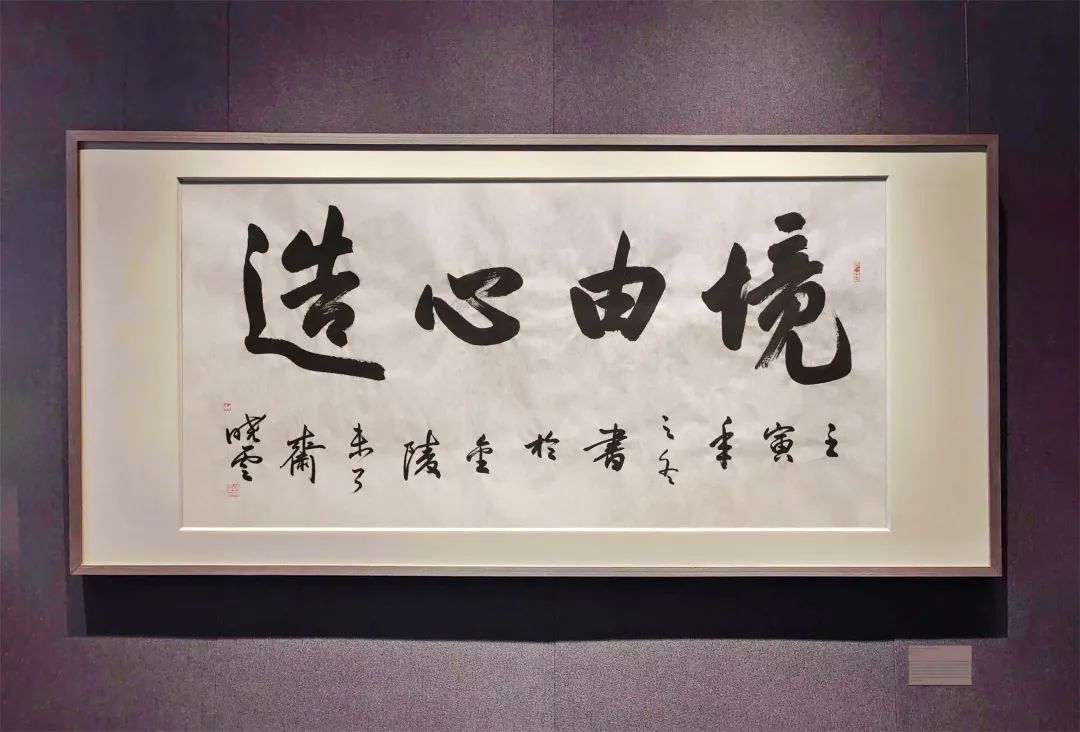 境由心造
壬寅年之冬書於金陵未了齋
晓雲